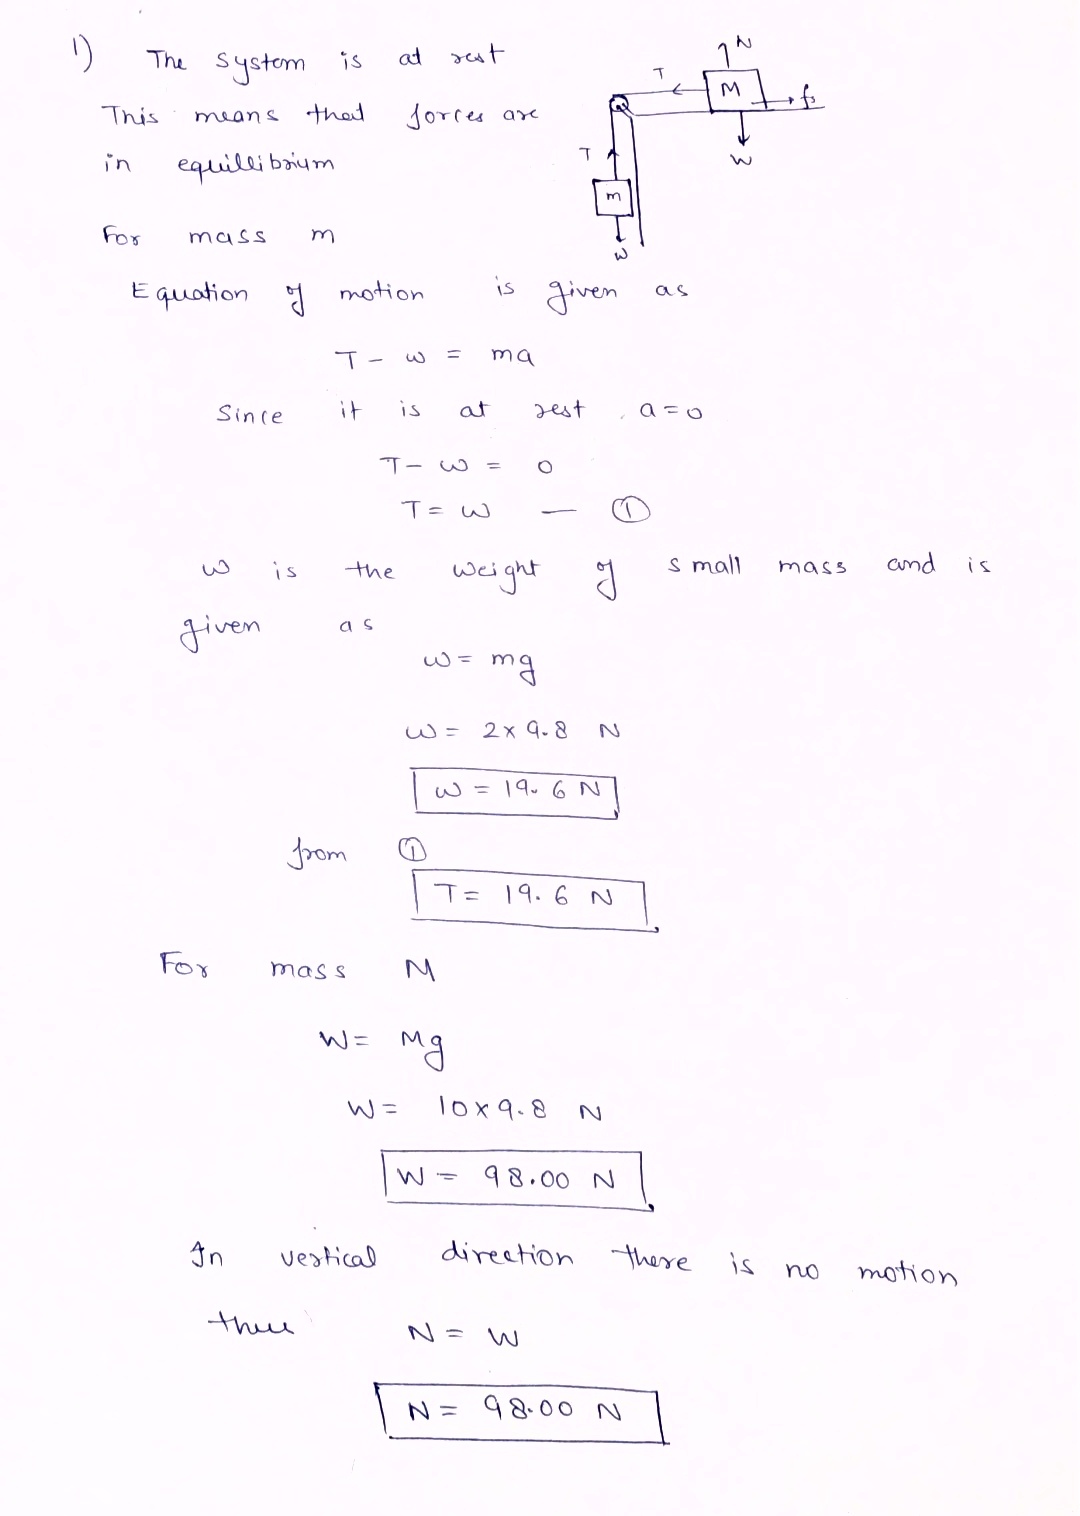 1) The system is at rest
This means that forces are
in equillibrium
N
T
M
fs
W
T
m
w
For mass m
Equation of motion is given as
T - w = ma
Since it is at rest, a=0
T- w = 0
T= w — ①
w is the weight of small mass and is
given as
w= mg
w= 2x9.8 N
w = 19.6 N
from ①
T= 19.6 N
For mass M
W= Mg
W= 10x9.8 N
W = 98.00 N
In vertical direction there is no motion
thus N = W
N = 98.00 N